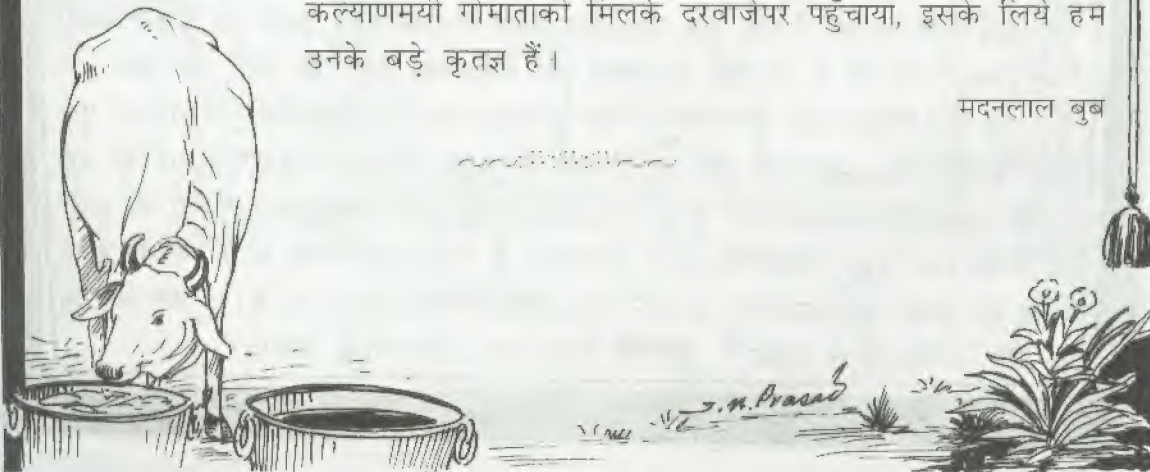 कल्याणमयी गोमाताको मिलके दरवाजेपर पहुँचाया, इसके लिये हम
उनके बड़े कृतज्ञ हैं।
मदनलाल बुब
J.N. Prasad